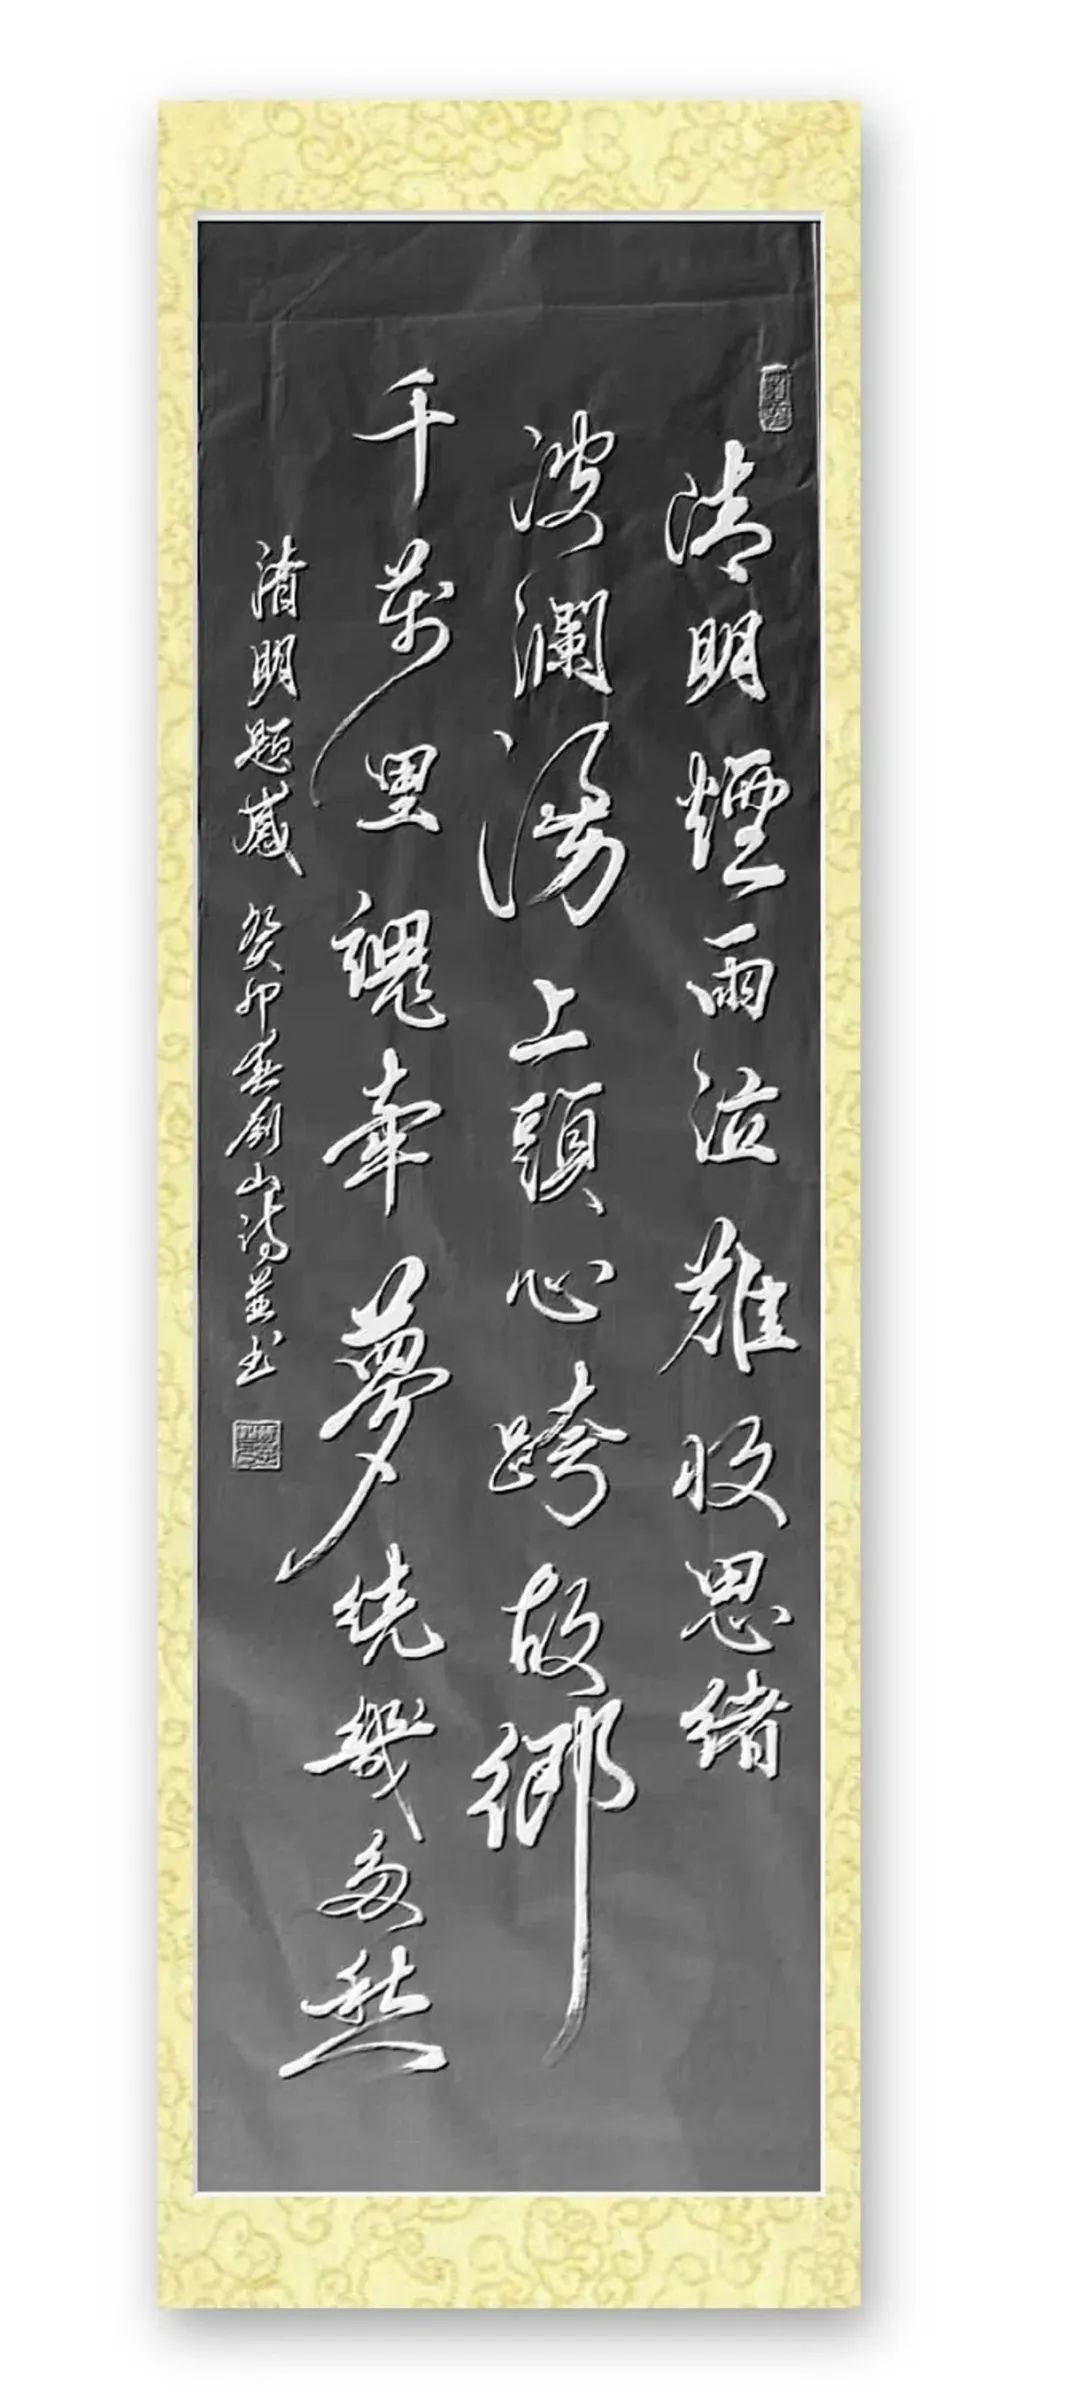 清明煙雨泣難收思緒
波瀾湧上頭心跨故鄉
千萬里魂牽夢繞幾多愁
清明題感 癸卯春劍山詩並书